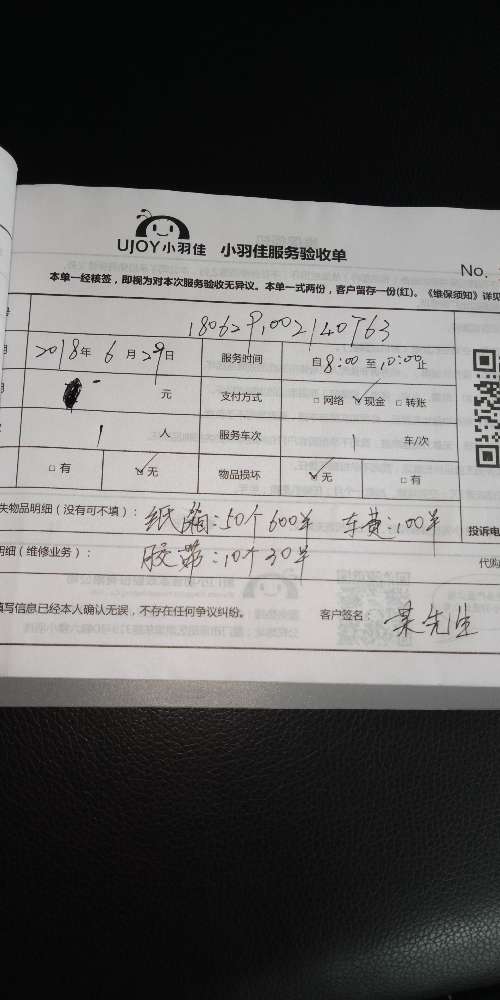 UJOY小羽佳 小羽佳服务验收单
No.
本单一经核签，即视为对本次服务验收无异议。本单一式两份，客户留存一份(红)。《维保须知》详见
2018年6月29日 服务时间 自8:00至10:00止
元 支付方式 □网络 ☑现金 □转账
1人 服务车次 1车/次
□有 ☑无 物品损坏 ☑无 □有
失物品明细（没有可不填）： 纸箱：50个600羊 车费：100羊
投诉电
明细（维修业务）： 胶带：10个30羊
代购
填写信息已经本人确认无误，不存在任何争议纠纷。 客户签名： 某先生